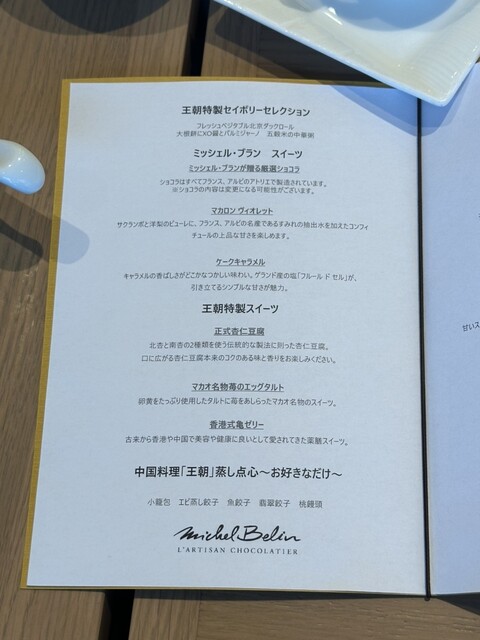 王朝特製セイボリーセレクション
フレッシュベジタブル北京ダックロール
大根餅にXO醤とパルミジャーノ 五穀米の中華粥
ミッシェル・ブラン スイーツ
ミッシェル・ブランが贈る厳選ショコラ
ショコラはすべてフランス、アルビのアトリエで製造されています。
※ショコラの内容は変更になる可能性がございます。
マカロン ヴィオレット
サクランボと洋梨のピューレに、フランス、アルビの名産であるすみれの抽出水を加えたコンフィ
チュールの上品な甘さを楽しめます。
ケークキャラメル
キャラメルの香ばしさがどこかなつかしい味わい。ゲランド産の塩「フルール ド セル」が、
引き立てるシンプルな甘さが魅力。
王朝特製スイーツ
正式杏仁豆腐
北杏と南杏の2種類を使う伝統的な製法に則った杏仁豆腐。
口に広がる杏仁豆腐本来のコクのある味と香りをお楽しみください。
マカオ名物苺のエッグタルト
卵黄をたっぷり使用したタルトに苺をあしらったマカオ名物のスイーツ。
香港式亀ゼリー
古来から香港や中国で美容や健康に良いとして愛されてきた薬膳スイーツ。
中国料理「王朝」蒸し点心～お好きなだけ～
小籠包 エビ蒸し餃子 魚餃子 翡翠餃子 桃饅頭
Michel Belin
L'ARTISAN CHOCOLATIER
甘いス